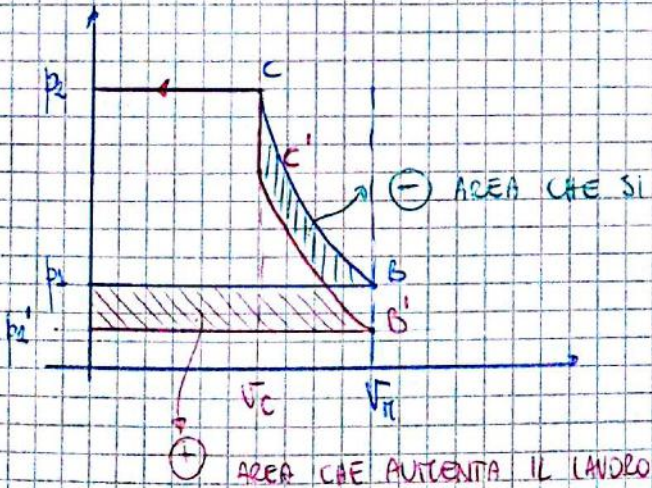 p2
C
C'
⊖ AREA CHE SI
p1
B
p1'
B'
Vc
VM
⊕ AREA CHE AUMENTA IL LAVORO